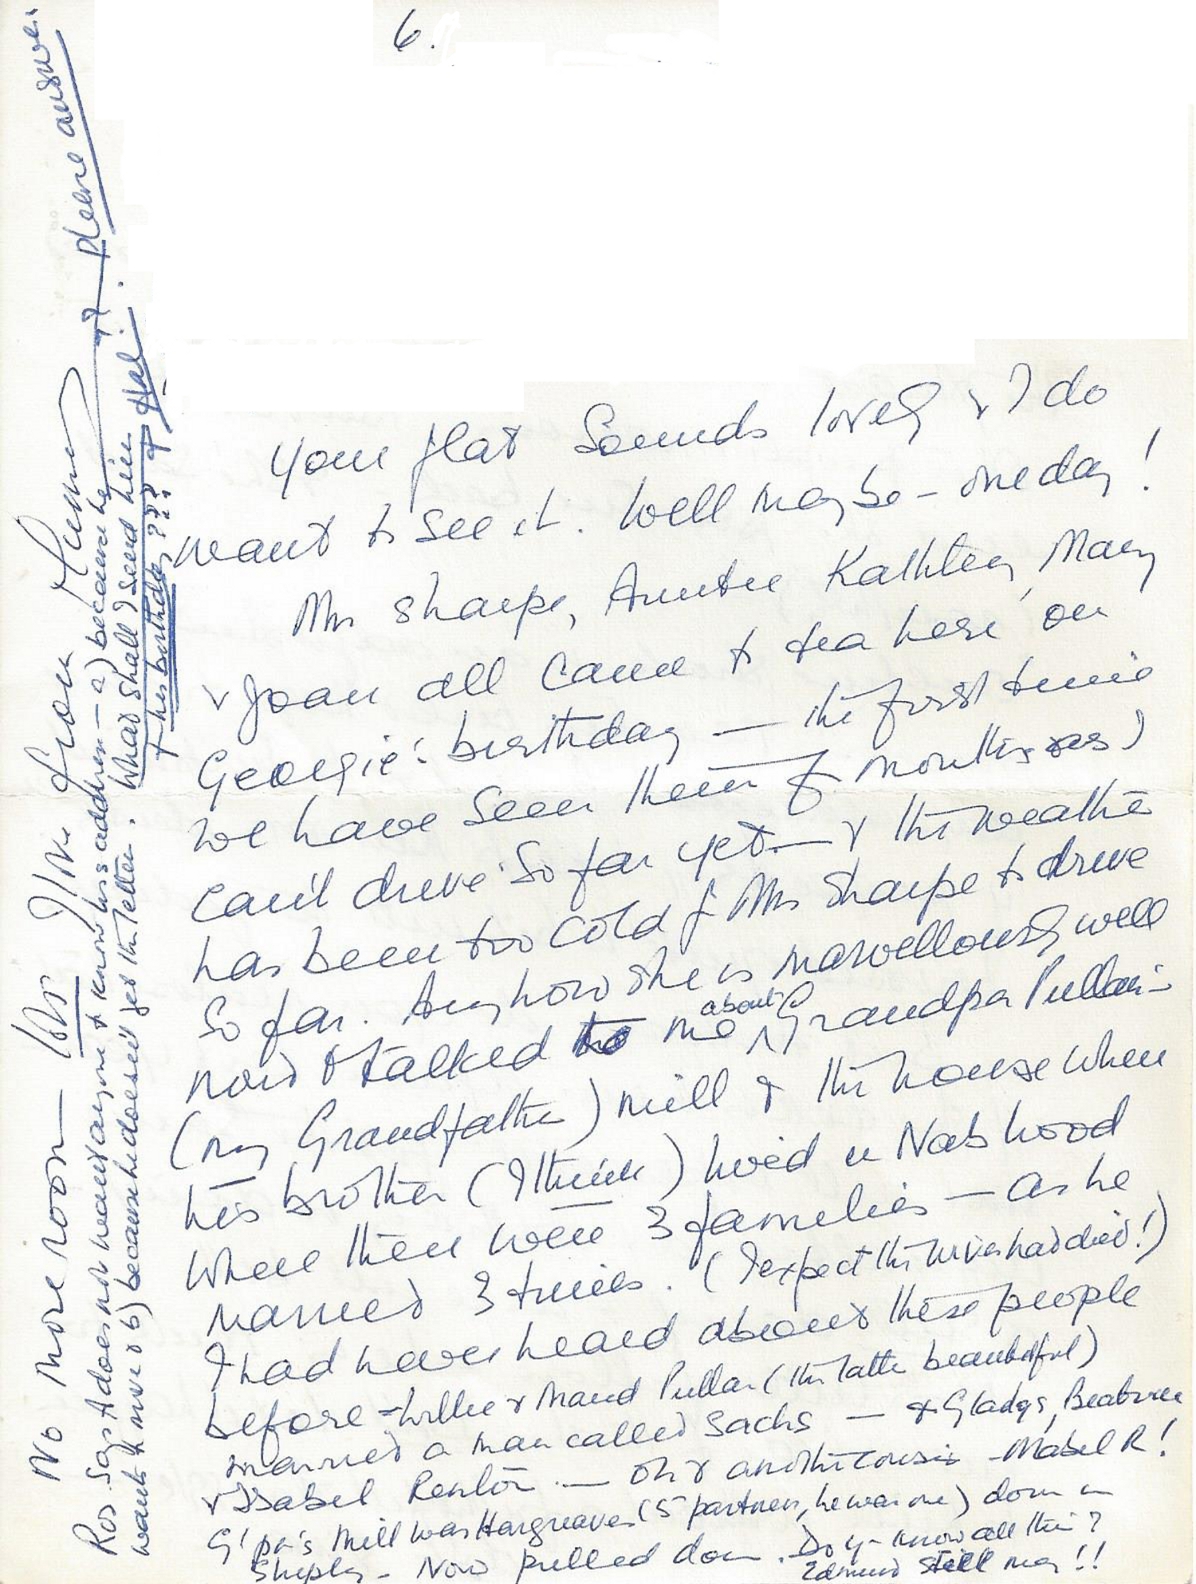 6.
Your flat sounds lovely & I do
want to see it. Well maybe - one day!
Mrs Sharpe, Auntie Kathleen, Mary
& Joan all came to tea here on
Georgie's birthday — the first time
we have seen them for months as I
can't drive so far yet — & the weather
has been too cold for Mrs Sharpe to drive
so far. Anyhow she is marvellously well
now & talked to me about Grandpa Pullan's
(my Grandfather) mill & the house where
his brother (I think) lived in Nab Wood
where there were 3 families — as he
married 3 times. (I expect the wives had died!)
I had never heard about these people
before - Willie & Maud Pullan (the latter beautiful)
married a man called Sachs — & Gladys, Beatrice
& Isabel Renton — Oh & another cousin - Mabel R!
G'pa's mill was Hargreaves (5 partners, he was one) down in
Shipley - Now pulled down. Do you know all this?
Edmund still may!!
No more room — from Mummy
Ros says A does not want anyone to know his address — a) because he
wants to move & b) because he doesn't get the letter. What shall I send him
for his birthday??? & Hal.
? please answer